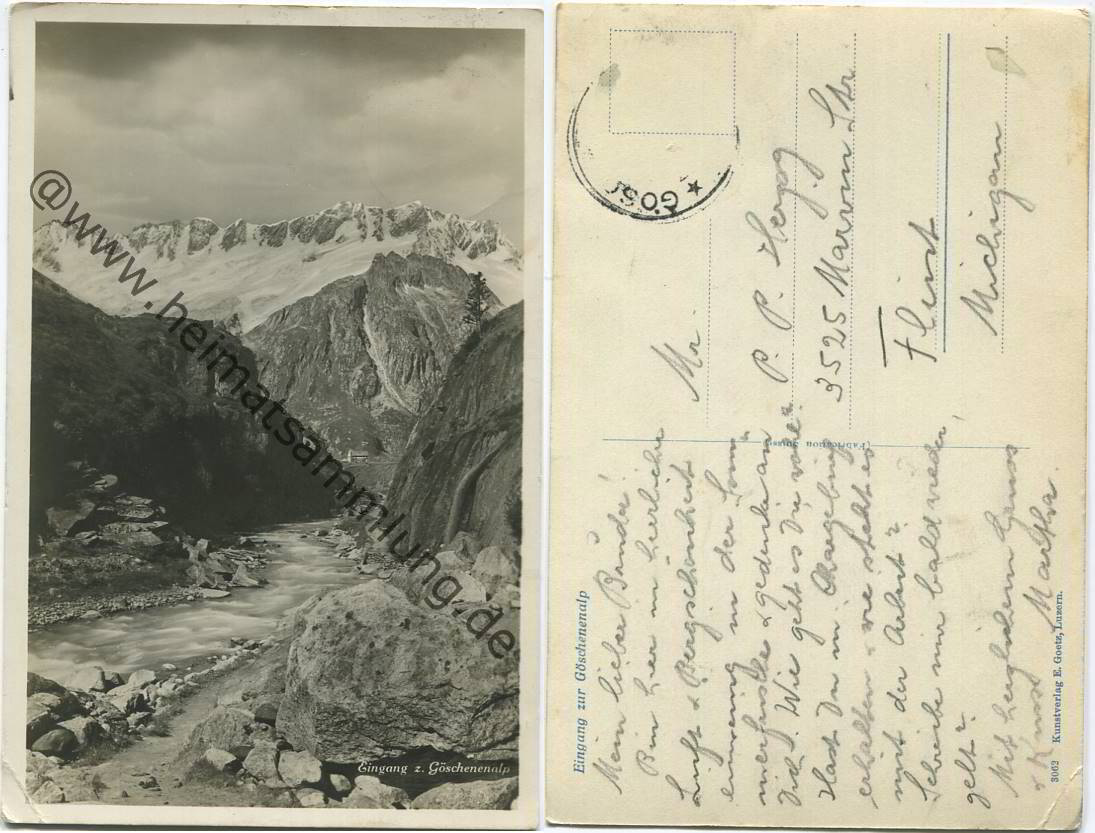 Eingang z. Göschenenalp
@www.heimatsammlung.de
Eingang zur Göschenenalp
Mein lieber Bruder!
Bin hier in herrlicher
Luft & Bergschönheit
in der
& gedenke an
Dich. Wie geht es Dir wohl?
Hast Du m.
erhalten & wie steht es
mit der Arbeit?
Schreibe mir bald wieder,
gelt?
Mit herzlichem Gruss
& Kuss Martha.
(Fabrication Suisse)
3062 Kunstverlag E. Goetz, Luzern.
★ GÖSC
Mr.
P. P. Herzog
3525 Marvin Str.
Flint
Michigan